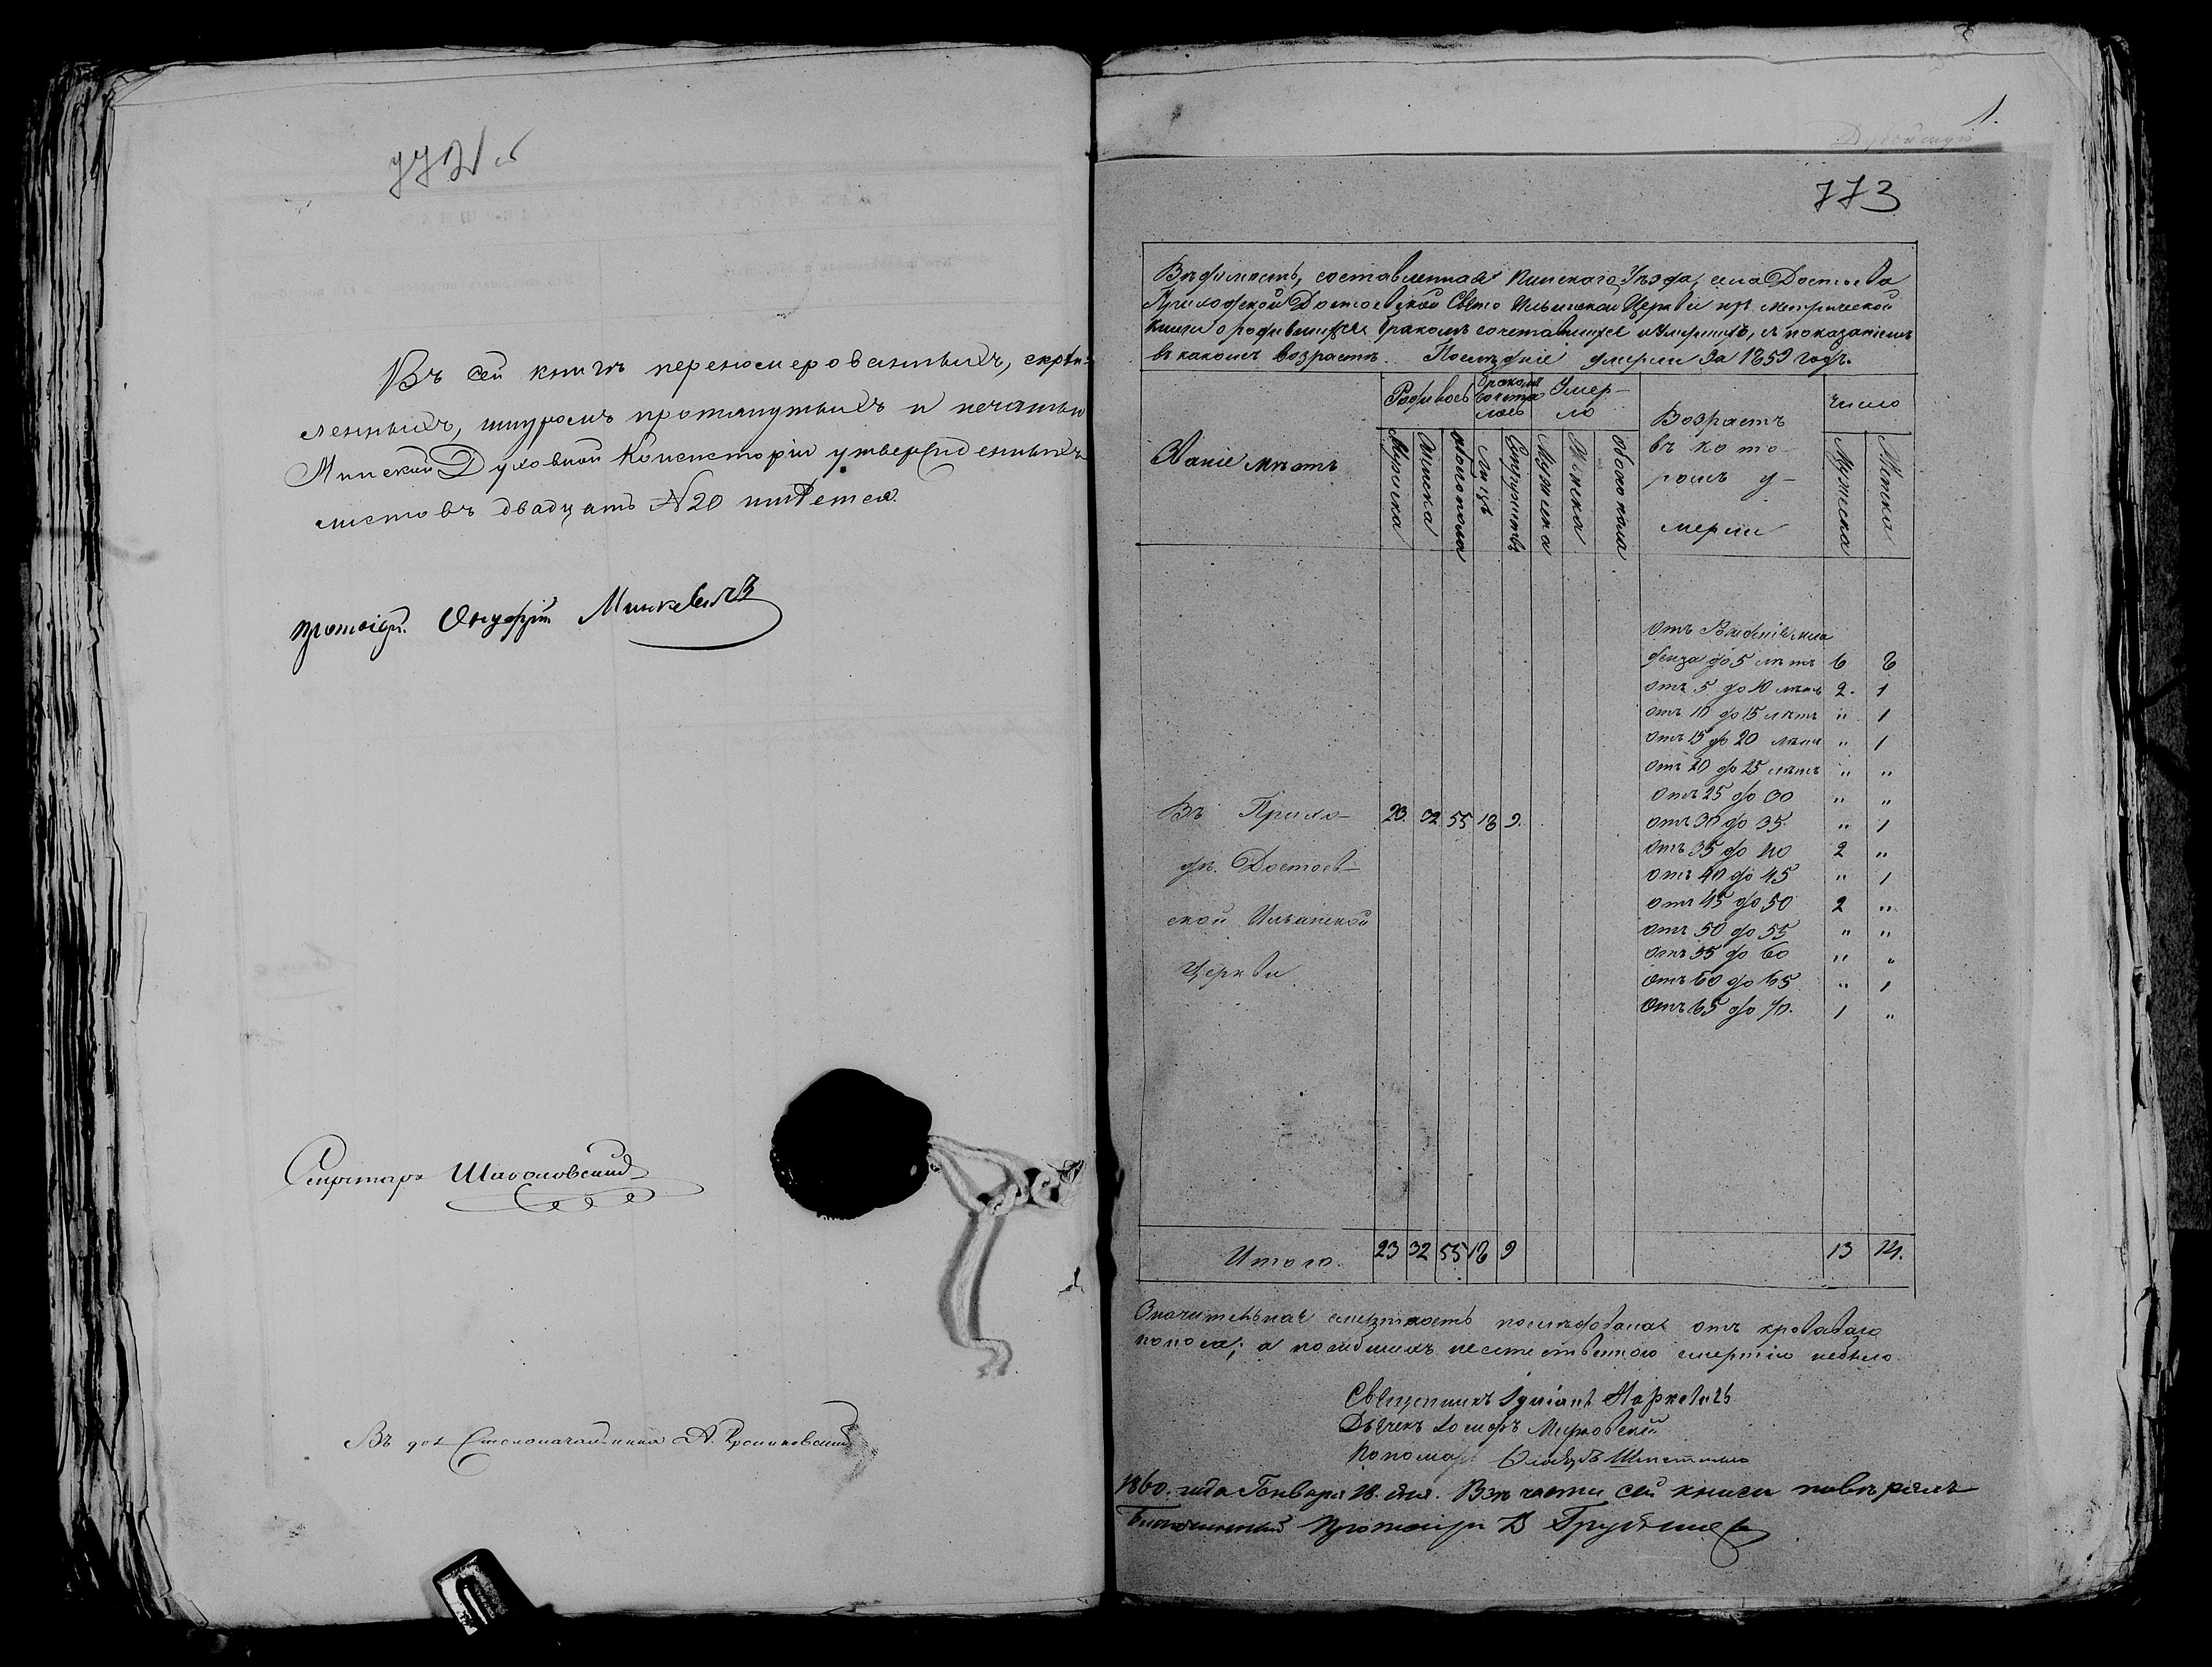 772 об
Въ сей книгѣ переномерованныхъ, скрѣп-
ленныхъ, шнуромъ протянутыхъ и печатью
Минской Духовной Консисторіи утвержденныхъ
листовъ двадцать №20 имѣется.
Протоіер. Онуфрій Минкевичъ
Секретарь
Въ дол. Столоначальника А.
1.
773
Вѣдомость, составленная Пинскаго Уѣзда, села Достоева
Приходской Достоевской Свято Ильинской Церкви изъ метрической
книги о родившихся бракомъ сочетавшихся и умершихъ, съ показаніемъ
въ какомъ возрастѣ. Послѣдніе умерли за 1859 годъ.
Званіе мѣстъ
Родилось
Бракомъ сочета лось
Умер- ло
Возрастъ въ кото- ромъ у- мерли
Число
Мужеска
Женска
обоего пола
Лицъ
Супружествъ
Мужеска
Женска
обоего пола
Мужеска
Женска
отъ
до 5 лѣтъ 6 8
отъ 5 до 10 лѣтъ 2. 1
отъ 10 до 15 лѣтъ " 1
отъ 15 до 20 лѣтъ " 1
отъ 20 до 25 лѣтъ " "
отъ 25 до 30 " "
Въ Прихо- 23. 32 55 18 9. отъ 30 до 35. " 1
дѣ. Достоев- отъ 35 до 40 2 "
отъ 40 до 45 " 1
ской Ильинской отъ 45 до 50 2 "
отъ 50 до 55 " "
Церкви отъ 55 до 60 " "
отъ 60 до 65 " 1
отъ 65 до 70. 1 "
Итого. 23 32 55 18 9 13 14.
Значительная смертность послѣдовала отъ кроваваго
поноса; а неестественною смертію небыло
Священникъ Маркевичъ
Дьячекъ Іосифъ
Пономарь
1860. года Генваря 18. дня. части сей книги повѣрялъ
Благочинный Протоіерей